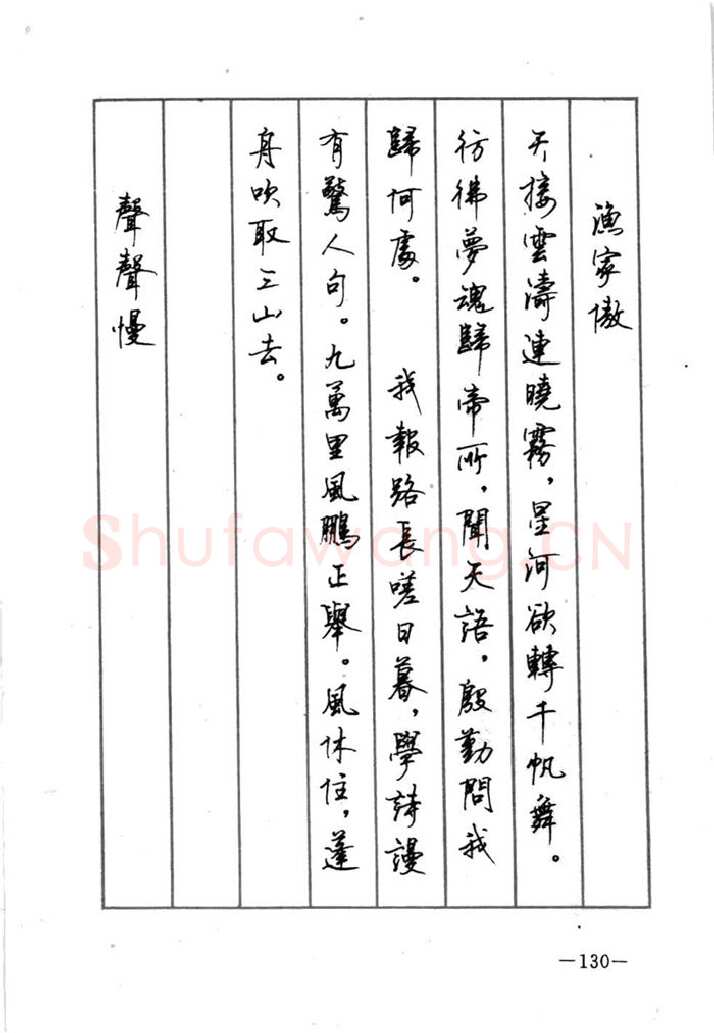 漁家傲
天接雲濤連曉霧，星河欲轉千帆舞。
彷彿夢魂歸帝所，聞天語，殷勤問我
歸何處。 我報路長嗟日暮，學詩謾
有驚人句。九萬里風鵬正舉。風休住，蓬
舟吹取三山去。
聲聲慢
Shufawang.CN
—130—